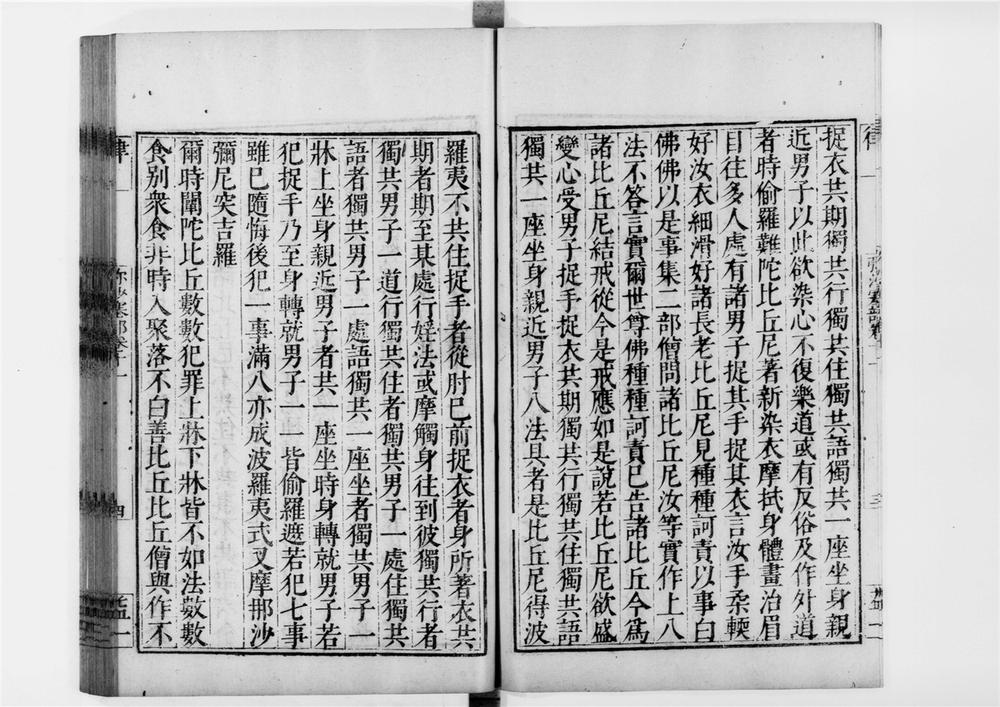 捉衣共期獨共行獨共住獨共語獨共一座坐身親
近男子以此欲染心不復樂道或有反俗及作外道
者時偷羅難陀比丘尼著新染衣摩拭身體畫治眉
目往多人處有諸男子捉其手捉其衣言汝手柔軟
好汝衣細滑好諸長老比丘尼見種種訶責以事白
佛佛以是事集二部僧問諸比丘尼汝等實作上八
法不答言實爾世尊佛種種訶責已告諸比丘今為
諸比丘尼結戒從今是戒應如是說若比丘尼欲盛
變心受男子捉手捉衣共期獨共行獨共住獨共語
獨共一座坐身親近男子八法具者是比丘尼得波
羅夷不共住捉手者從肘已前捉衣者身所著衣共
期者期至某處行婬法或摩觸身往到彼獨共行者
獨共男子一道行獨共住者獨共男子一處住獨共
語者獨共男子一處語獨共一座坐者獨共男子一
牀上坐身親近男子者共一座坐時身轉就男子若
犯捉手乃至身轉就男子一一皆偷羅遮若犯七事
雖已隨悔後犯一事滿八亦成波羅夷式叉摩那沙
彌尼突吉羅
爾時闡陀比丘數數犯罪上牀下牀皆不如法數數
食別眾食非時入聚落不白善比丘比丘僧與作不